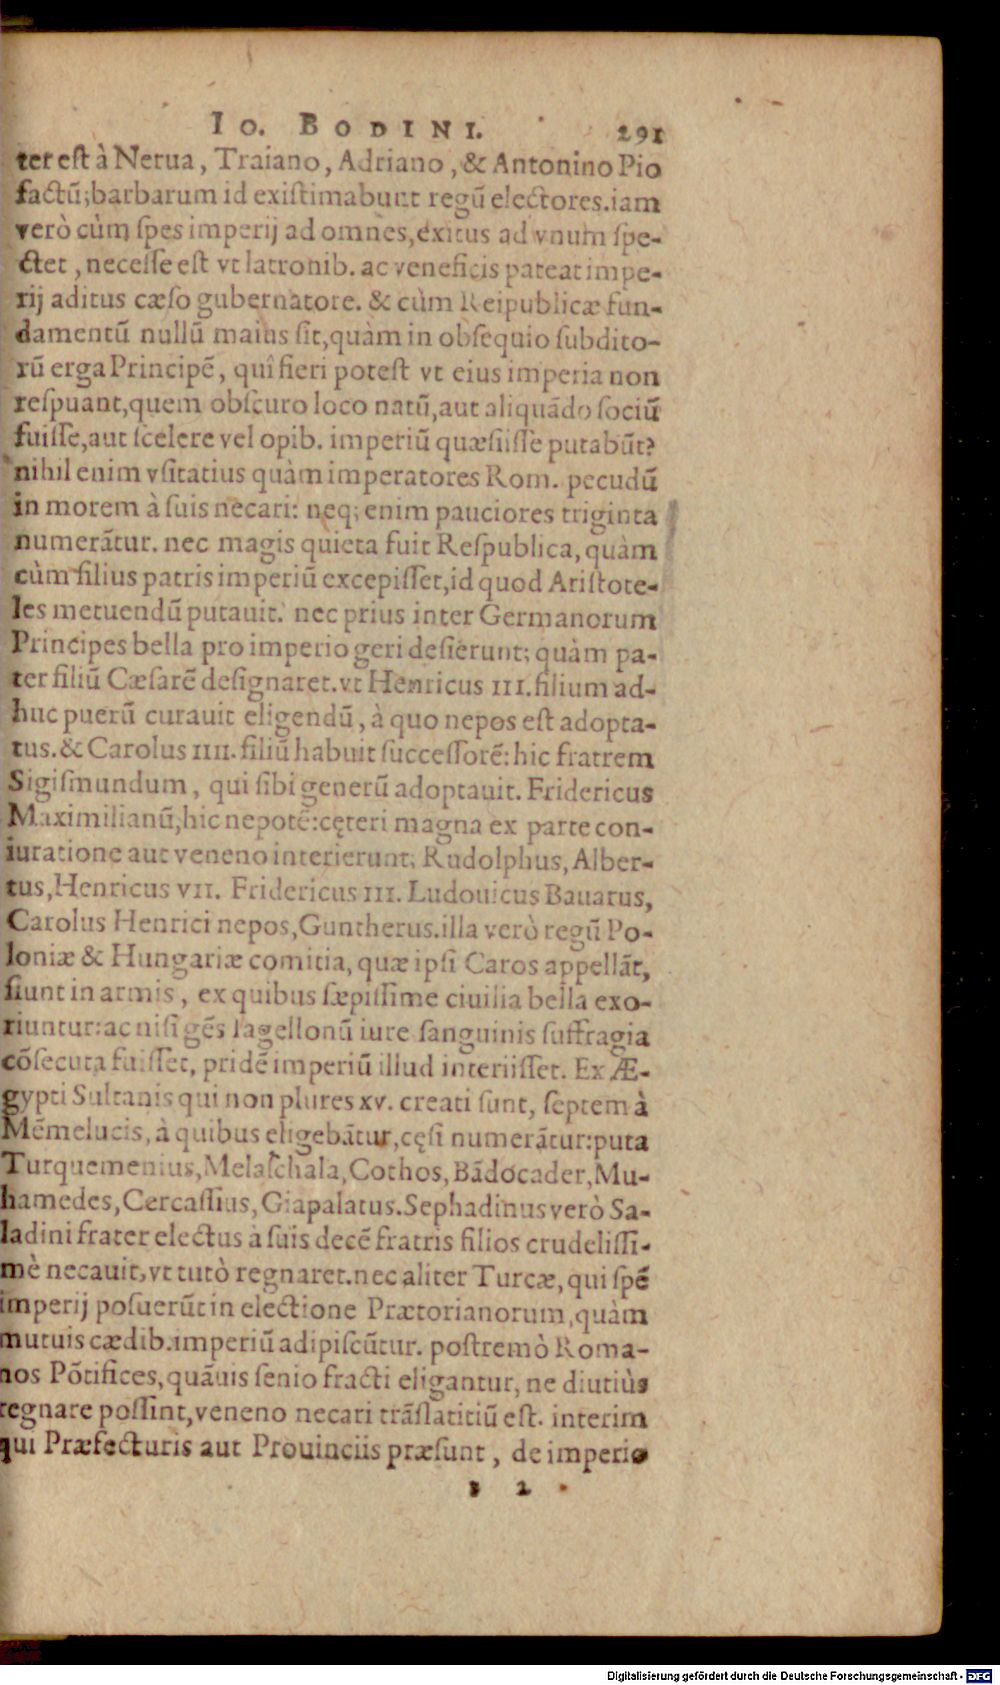 Io. BODINI. 291
ter est à Nerua, Traiano, Adriano, & Antonino Pio
factũ; barbarum id existimabunt regũ electores. iam
verò cùm spes imperij ad omnes, exitus ad vnum spe-
ctet, necesse est vt latronib. ac veneficis pateat impe-
rij aditus cæso gubernatore. & cùm Reipublicæ fun-
damentũ nullũ maius sit, quàm in obsequio subdito-
rũ erga Principẽ, quî fieri potest vt eius imperia non
respuant, quem obscuro loco natũ, aut aliquãdo sociũ
fuisse, aut scelere vel opib. imperiũ quæsiisse putabũt?
nihil enim vsitatius quàm imperatores Rom. pecudũ
in morem à suis necari: neq; enim pauciores triginta
numerãtur. nec magis quieta fuit Respublica, quàm
cùm filius patris imperiũ excepisset, id quod Aristote-
les metuendũ putauit. nec prius inter Germanorum
Principes bella pro imperio geri desierunt; quàm pa-
ter filiũ Cæsarẽ designaret. vt Henricus III. filium ad-
huc puerũ curauit eligendũ, à quo nepos est adopta-
tus. & Carolus IIII. filiũ habuit successorẽ: hic fratrem
Sigismundum, qui sibi generũ adoptauit. Fridericus
Maximilianũ; hic nepotẽ: cęteri magna ex parte con-
iuratione aut veneno interierunt; Rudolphus, Alber-
tus, Henricus VII. Fridericus III. Ludouicus Bauarus,
Carolus Henrici nepos, Guntherus. illa verò regũ Po-
loniæ & Hungariæ comitia, quæ ipsi Caros appellãt,
fiunt in armis, ex quibus sæpissime ciuilia bella exo-
riuntur: ac nisi gẽs Iagellonũ iure sanguinis suffragia
cõsecuta fuisset, pridẽ imperiũ illud interiisset. Ex Æ-
gypti Sultanis qui non plures xv. creati sunt, septem à
Mẽmelucis, à quibus eligebãtur, cęsi numerãtur: puta
Turquemenius, Melaschala, Cothos, Bãdocader, Mu-
hamedes, Cercassius, Giapalatus. Sephadinus verò Sa-
ladini frater electus à suis decẽ fratris filios crudelissi-
mè necauit, vt tutò regnaret. nec aliter Turcæ, qui spẽ
imperij posuerũt in electione Prætorianorum, quàm
mutuis cædib. imperiũ adipiscũtur. postremò Roma-
nos Põtifices, quãuis senio fracti eligantur, ne diutiùs
regnare possint, veneno necari trãslatitiũ est. interim
qui Præfecturis aut Prouinciis præsunt, de imperio
2
Digitalisierung gefördert durch die Deutsche Forschungsgemeinschaft - DFG